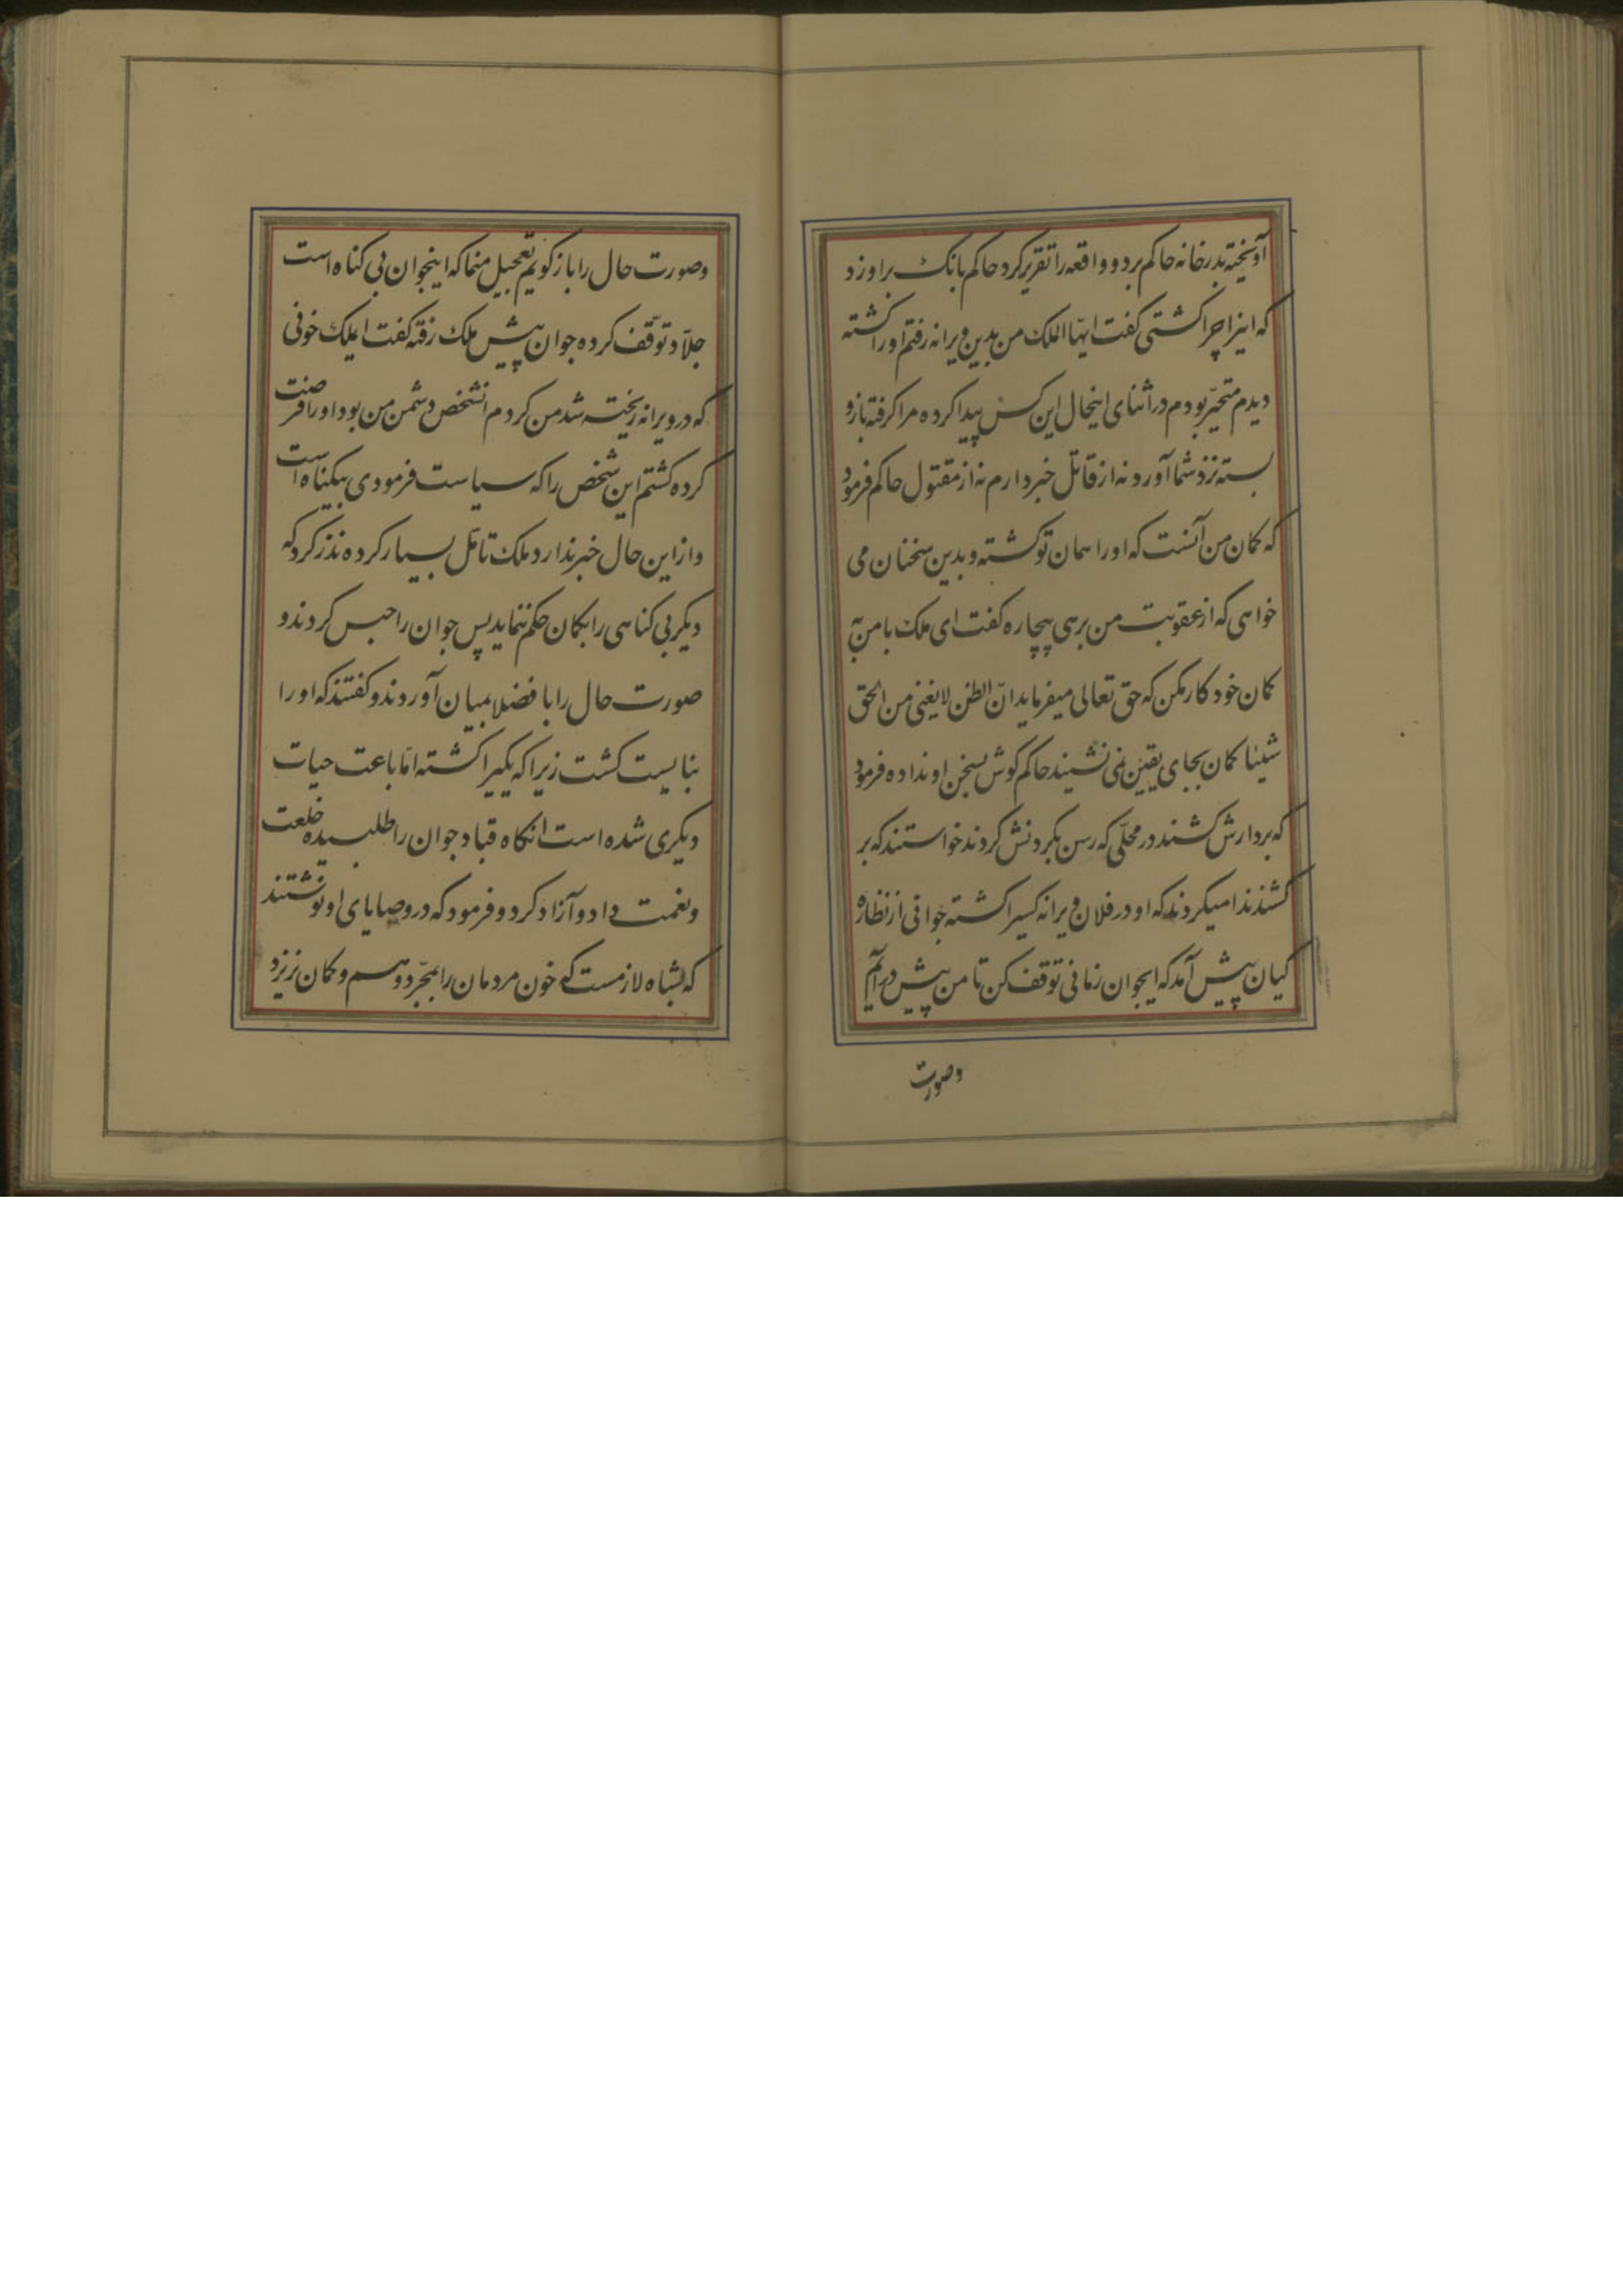 آویخته بدرخانه حاکم برد و واقعه را تقریر کرد حاکم بانک بر او زد
که اینرا چرا کشتی کفت ایها الملک من بدین ویرانه رفتم او را کشته
دیدم متحیّر بودم در اثنای اینحال این کس پیدا کرده مرا کرفته بازو
بسته نزد شما آورد نه از قاتل خبر دارم نه از مقتول حاکم فرمود
که کمان من آنست که او را همان تو کشته و بدین سخنان می
خواهی که از عقوبت من برهی بیچاره کفت ای ملک با من به
کمان خود کار مکن که حق تعالی میفرماید انّ الظن لا یغنی من الحق
شیئا کمان بجای یقین نمی نشیند حاکم کوش بسخن او نداده فرمود
که بر دارش کشند در محلّی که رسن بکردنش کردند خواستند که بر
کشند ندا میکردند که او در فلان ویرانه کسیرا کشته جوانی از نظاره
کیان پیش آمد که ایجوان زمانی توقف کن تا من پیش در آیم
وصورت
وصورت حال را باز کویم تعجیل منما که اینجوان بی کناه است
جلّاد توقّف کرده جوان پیش ملک رفته کفت ایملک خونی
که در ویرانه ریخته شد من کردم انشخص دشمن من بود او را فرصت
کرده کشتم این شخص را که سیاست فرمودی بیکناه است
و از این حال خبر ندارد ملک تامّل بسیار کرده نذر کرد که
دیکر بی کناهی را بکمان حکم ننماید پس جوان را حبس کردند و
صورت حال را با فضلا بمیان آوردند و کفتند که او را
نبایست کشت زیرا که یکیرا کشته امّا باعث حیات
دیکری شده است انکاه قباد جوان را طلبیده خلعت
و نعمت داد و آزاد کرد و فرمود که در وصایای او نوشتند
که بشاه لازمست که خون مردمان را بمجّرد وهم و کمان نریزد